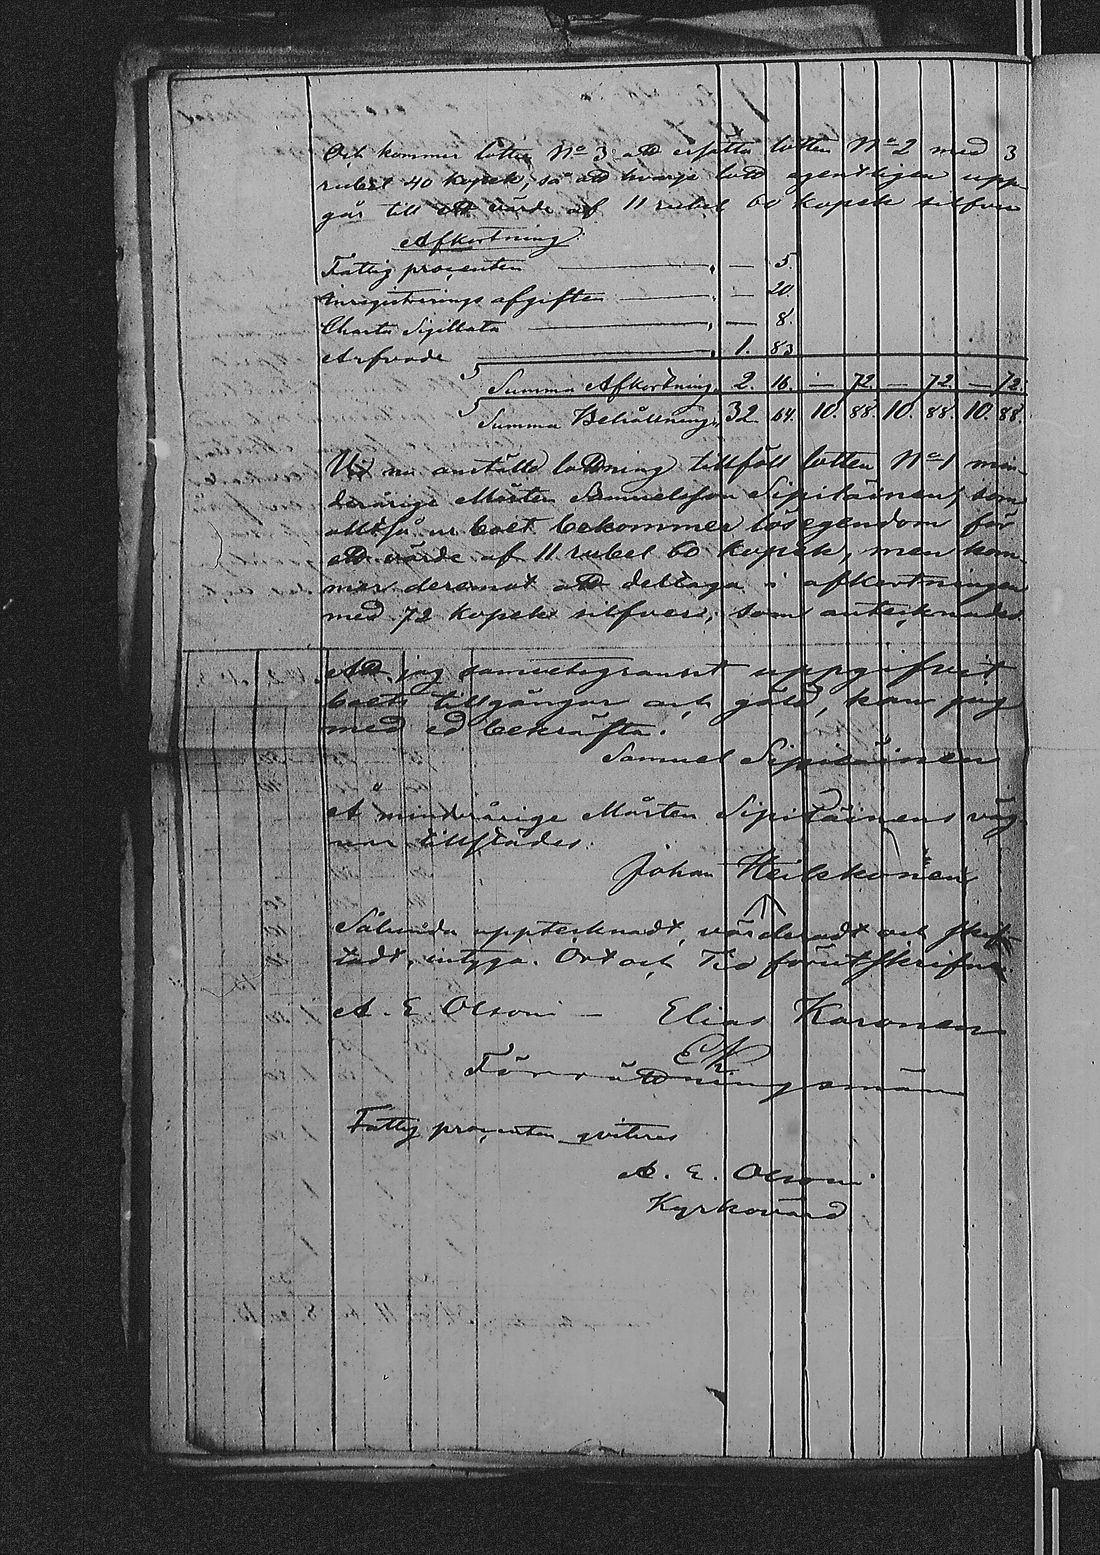 Och kommer lotten No 3 att ersätta lotten No 2 med 3
rubel 40 kopek, så att hvarje lott egentligen upp
går till ett värde af 11 rubel 60 kopek silfver
Afkortning.
Fattig procenten — 5.
Inregistrerings afgiften — 20.
Charta Sigillata — 8.
Arfvode 1. 83
Summa Afkortning 2. 16. — 72. — 72. — 72.
Summa Behållning 32 64. 10. 88. 10. 88. 10. 88.
Vid nu anställd lottning tillföll lotten No 1 min-
derårige Mårten Samuelsson Sipiläinen, som
alltså ur boet bekommer lösegendom för
ett värde af 11 rubel 60 kopek, men kom
mer deremot att deltaga i afkortningen
med 72 kopek silfver, som antecknades
Att jag samvetsgrannt uppgifvit
boets tillgångar och gäld, kan jag
med ed bekräfta.
Samuel Sipiläinen
A minderårige Mårten Sipiläinens väg-
nar tillstädes.
Johan Heiskonen
Sålunda upptecknadt, värderadt och skif-
tadt, intyga. Ort och Tid förutskrifne.
A. E. Olsoni — Elias Karonen
EK.
Förrättningsmän
Fattig procenten qviteras
A. E. Olsoni
Kyrkovärd